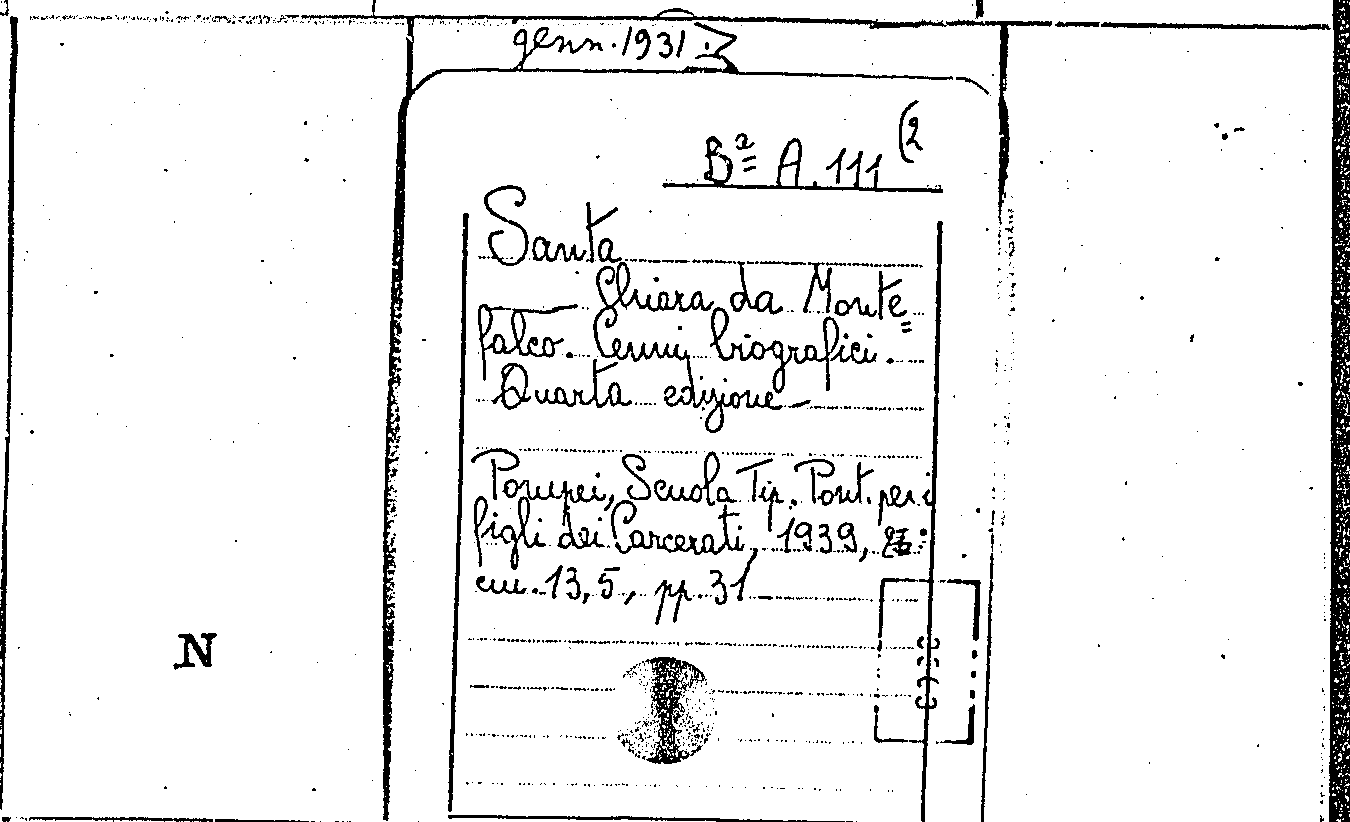 genn. 1931.
Bª A. 111 (2
Santa
Chiara da Monte=
falco. Cenni biografici.
Quarta edizione
Pompei, Scuola Tip. Pont. per i
figli dei Carcerati, 1939,
cm. 13,5, pp. 31
N